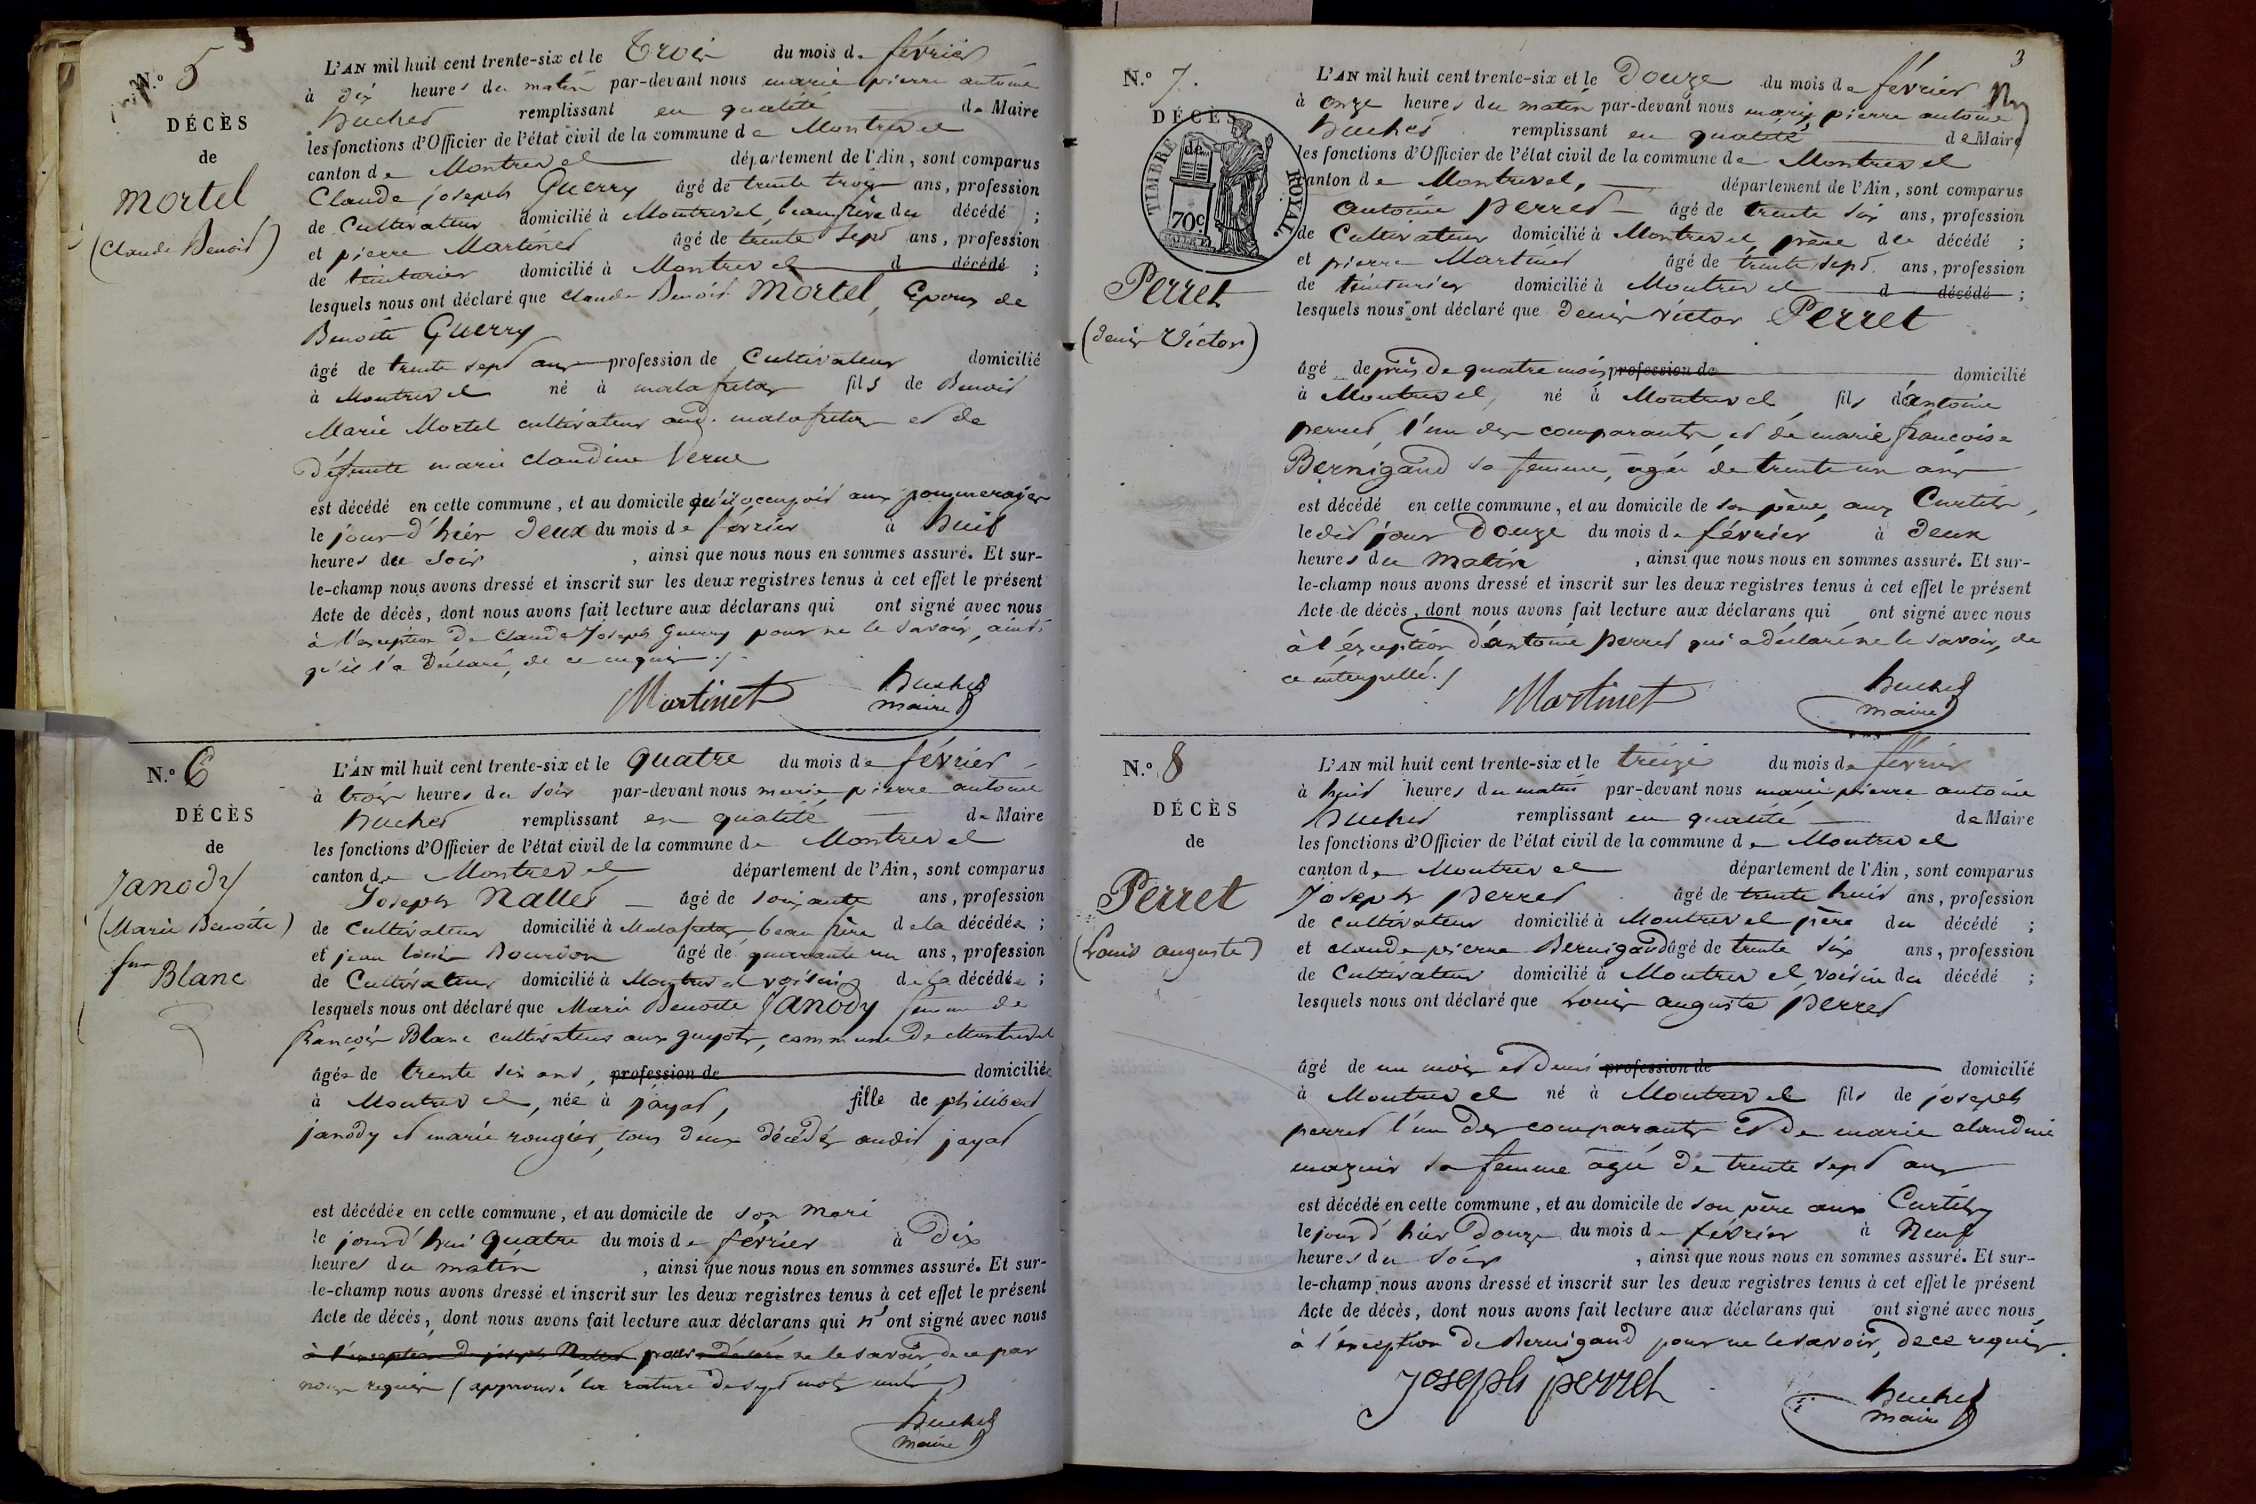 N.º 5
DÉCÈS
de
Mortel
(Claude Benoit)
L'AN mil huit cent trente-six et le Trois du mois de février
à dix heures du matin par-devant nous marie pierre antoine
huchet remplissant en qualité de Maire
les fonctions d'Officier de l'état civil de la commune de Montrevel
canton de Montrevel département de l'Ain, sont comparus
Claude joseph Guerry âgé de trente trois ans, profession
de Cultivateur domicilié à Montrevel, beau frère du décédé ;
et pierre Martinet âgé de trente sept ans, profession
de teinturier domicilié à Montrevel d décédé ;
lesquels nous ont déclaré que Claude Benoit Mortel, Epoux de
Benoite Guerry
âgé de trente sept ans profession de Cultivateur domicilié
à Montrevel né à malafretaz fils de Benoit
Marie Mortel cultivateur aud. malafretaz et de
Défunte marie claudine Verne
est décédé en cette commune, et au domicile qu'il occupoit aux pommerayes
le jour d'hier Deux du mois de février à huit
heures du Soir , ainsi que nous nous en sommes assuré. Et sur-
le-champ nous avons dressé et inscrit sur les deux registres tenus à cet effet le présent
Acte de décès, dont nous avons fait lecture aux déclarans qui ont signé avec nous
à l'exception de Claude Joseph Guerry pour ne le savoir, ainsi
qu'il l'a Déclaré, de ce enquis ./.
Martinet huchet
maire
N.º 6
DÉCÈS
de
Janody
(Marie Benoite)
fme Blanc
L'AN mil huit cent trente-six et le quatre du mois de février
à trois heures du soir par-devant nous marie pierre antoine
huchet remplissant en qualité de Maire
les fonctions d'Officier de l'état civil de la commune de Montrevel
canton de Montrevel département de l'Ain, sont comparus
Joseph Nallet âgé de soixante ans, profession
de Cultivateur domicilié à Malafretaz beau frère de la décédée ;
et jean louis Bourdon âgé de quarante un ans, profession
de Cultivateur domicilié à Montrevel voisin de la décédée ;
lesquels nous ont déclaré que Marie Benoite Janody femme de
françois Blanc cultivateur aux guyots, commune de Montrevel
âgée de trente six ans, profession de domiciliée
à Montrevel, née à jayat, fille de philibert
janody et marie rougier, tous deux décédés audit jayat
est décédée en cette commune, et au domicile de son mari
le jourd'hui quatre du mois de février à Dix
heures du matin , ainsi que nous nous en sommes assuré. Et sur-
le-champ nous avons dressé et inscrit sur les deux registres tenus à cet effet le présent
Acte de décès, dont nous avons fait lecture aux déclarans qui n'ont signé avec nous
à l'exception de joseph Nallet pour a déclaré ne le savoir de ce par
nous requis (approuvé la rature de sept mots nuls)
huchet
maire
3
N.º 7.
DÉCÈS
de
TIMBRE ROYAL
70c
Perret
(denis Victor)
L'AN mil huit cent trente-six et le Douze du mois de février
à onze heures du matin par-devant nous marie pierre antoine
huchet remplissant en qualité de Maire
les fonctions d'Officier de l'état civil de la commune de Montrevel
canton de Montrevel, département de l'Ain, sont comparus
antoine perret âgé de trente six ans, profession
de Cultivateur domicilié à Montrevel, père du décédé ;
et pierre Martinet âgé de trente sept ans, profession
de teinturier domicilié à Montrevel d décédé ;
lesquels nous ont déclaré que denis victor Perret
âgé de près de quatre mois profession de domicilié
à Montrevel, né à Montrevel, fils d'antoine
perret, l'un des comparants, et de marie françoise
Bernigaud sa femme, âgée de trente un ans
est décédé en cette commune, et au domicile de son père, aux Curtits,
le dit jour Douze du mois de février à deux
heures du matin , ainsi que nous nous en sommes assuré. Et sur-
le-champ nous avons dressé et inscrit sur les deux registres tenus à cet effet le présent
Acte de décès, dont nous avons fait lecture aux déclarans qui ont signé avec nous
à l'exception d'antoine perret qui a déclaré ne le savoir, de
ce interpellé. /
Martinet huchet
maire
N.º 8
DÉCÈS
de
Perret
(Louis auguste)
L'AN mil huit cent trente-six et le treize du mois de février
à huit heures du matin par-devant nous marie pierre antoine
huchet remplissant en qualité de Maire
les fonctions d'Officier de l'état civil de la commune de Montrevel
canton de Montrevel département de l'Ain, sont comparus
Joseph perret âgé de trente huit ans, profession
de cultivateur domicilié à Montrevel père du décédé ;
et claude pierre Bernigaud âgé de trente six ans, profession
de Cultivateur domicilié à Montrevel voisin du décédé ;
lesquels nous ont déclaré que Louis auguste perret
âgé de un mois et demi profession de domicilié
à Montrevel né à Montrevel fils de joseph
perret l'un des comparants et de marie claudine
mazuir sa femme âgée de trente sept ans
est décédé en cette commune, et au domicile de son père aux Curtits
le jour d'hier Douze du mois de février à Neuf
heures du Soir , ainsi que nous nous en sommes assuré. Et sur-
le-champ nous avons dressé et inscrit sur les deux registres tenus à cet effet le présent
Acte de décès, dont nous avons fait lecture aux déclarans qui ont signé avec nous
à l'exception de Bernigaud pour ne le savoir, de ce requis.
Joseph perret huchet
maire